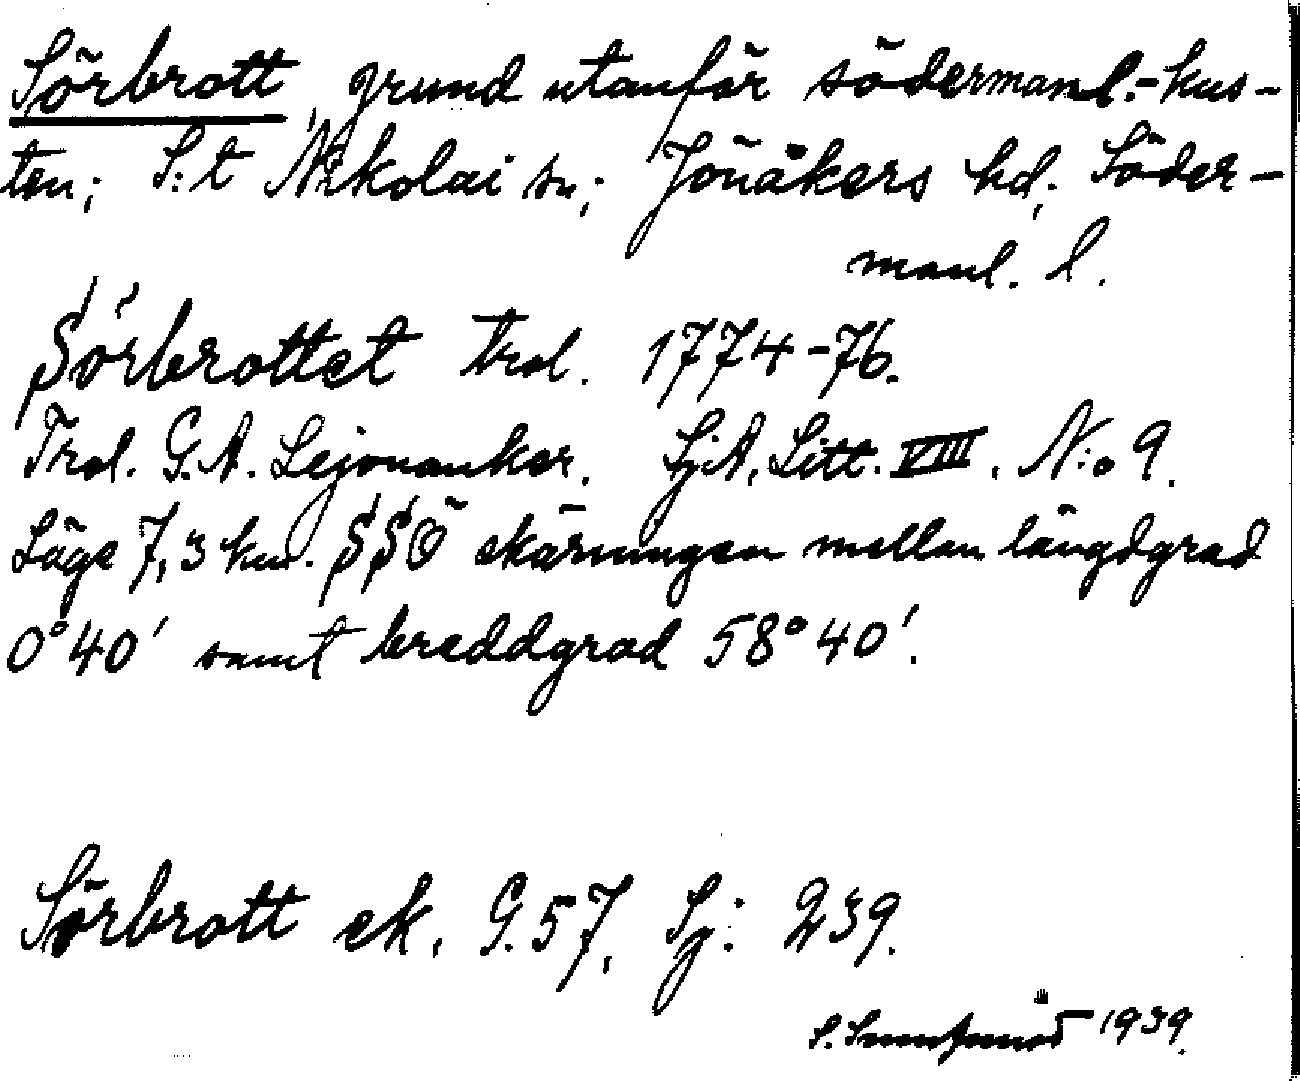 Sörbrott, grund utanför södermanl.-kus-
ten; S:t Nikolai sn; Jönåkers hd; Söder-
manl. l.
Sörbrottet Trol. 1774-76.
Trol. G.A. Lejonanker. SjA, Litt. VIII. N:o 9.
Läge 7,3 km. SSÖ skärningen mellan längdgrad
0°40' samt breddgrad 58°40'.
Sörbrott ek. G.57, Sj: 239.
S. 1939.